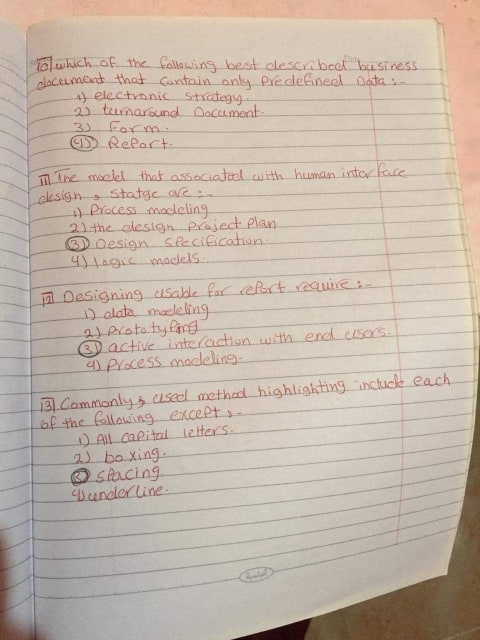 10 which of the following best described business
document that contain only Predefined Data :-
1) electronic strategy.
2) turnaround Document.
3) Form.
4) Report.
11 The model that associated with human interface
design, statge are :-
1) Process modeling
2) the design Project Plan
3) Design Specification.
4) logic models.
12 Designing usable for refort require :-
1) data modeling
2) Prototyfing
3) active interaction with end users.
4) Process modeling.
13 Commonly used method highlighting include each
of the following except :-
1) All capital letters.
2) boxing.
3) spacing.
4) underline.